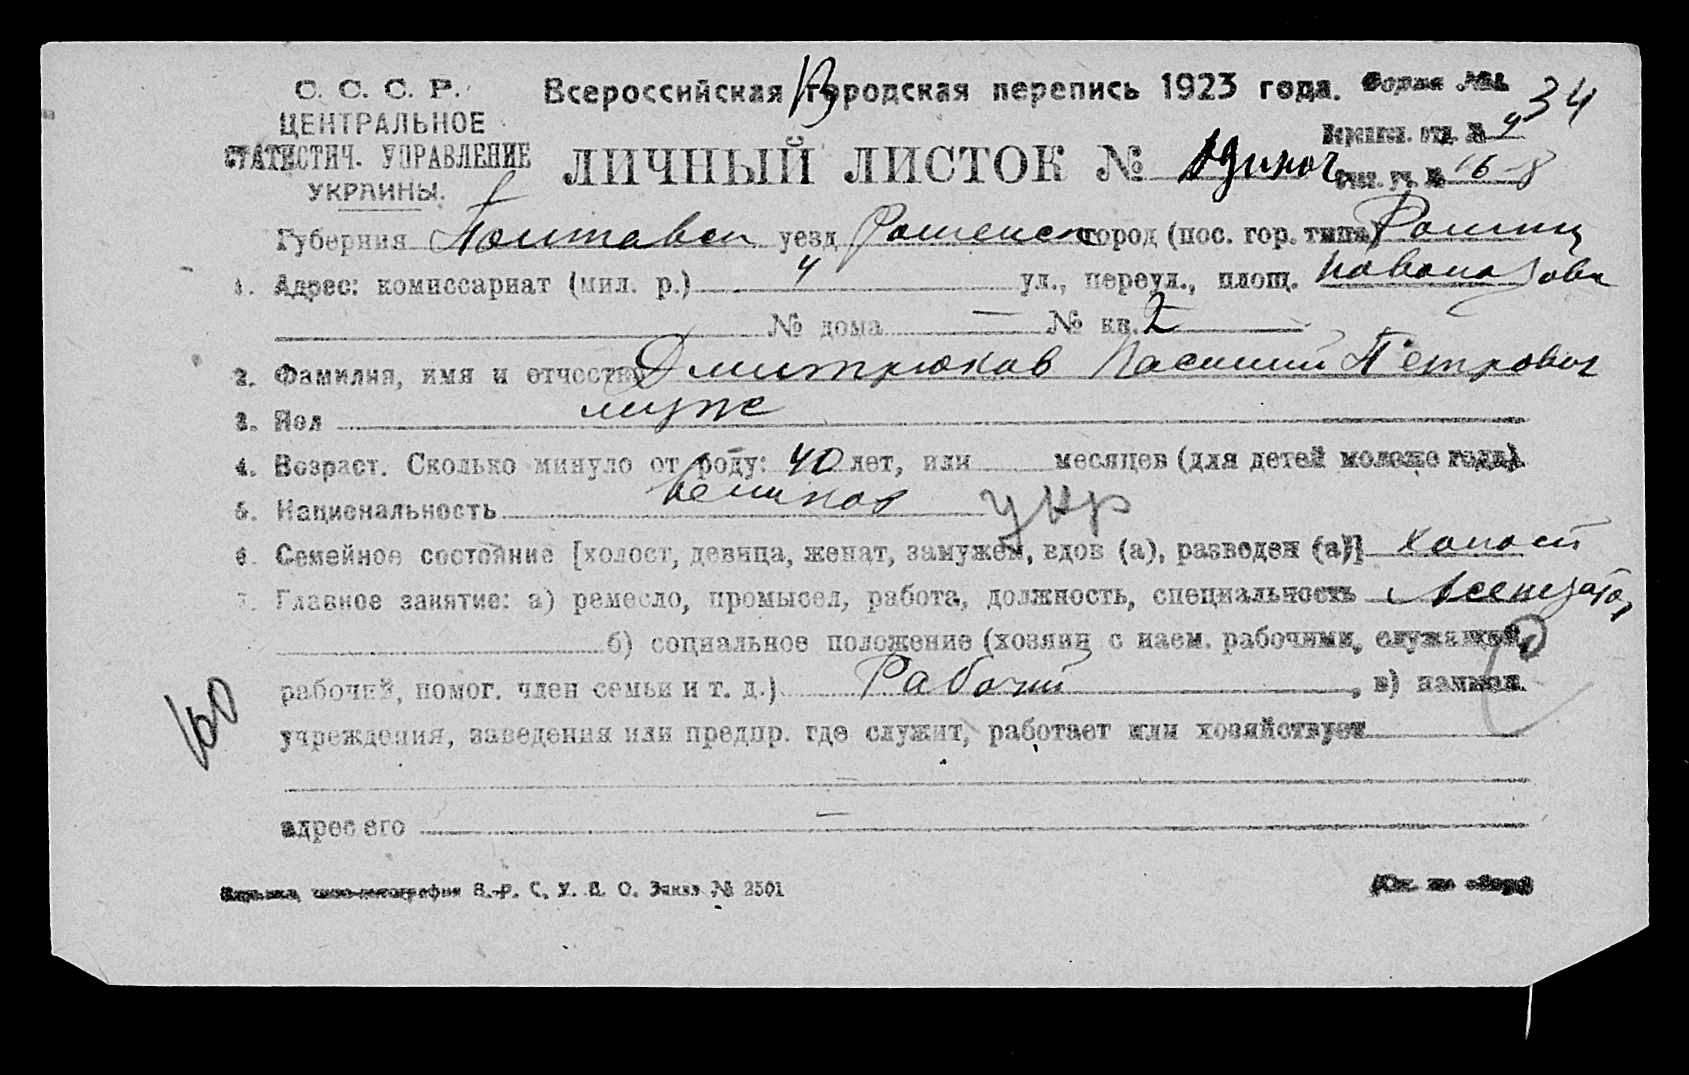 С. С. С. Р.
ЦЕНТРАЛЬНОЕ
СТАТИСТИЧ. УПРАВЛЕНИЕ
УКРАИНЫ.
Всероссийская городская перепись 1923 года. Форма
34
ЛИЧНЫЙ ЛИСТОК № Одиноч
Переписн. отд. № 4
Счет. уч. № 16-8
Губерния Полтавск уезд Роменск город (пос. гор. типа) Ромны
1. Адрес: комиссариат (мил. р.) 4 ул., переул., площ.
№ дома — № кв. 2
2. Фамилия, имя и отчество Дмитрюков Василий Петрович
3. Пол муж
4. Возраст. Сколько минуло от роду: 40 лет, или месяцев (для детей моложе года)
5. Национальность укр
6. Семейное состояние [холост, девица, женат, замужем, вдов (а), разведен (а)] холост
7. Главное занятие: а) ремесло, промысел, работа, должность, специальность Асенизатор
б) социальное положение (хозяин с наем. рабочими, служащий,
рабочий, помог. член семьи и т. д.) Рабочий, в) наимен.
учреждения, заведения или предпр. где служит, работает или хозяйствует
—
адрес его —
160
Заказ № 2501
(См. на обор.)